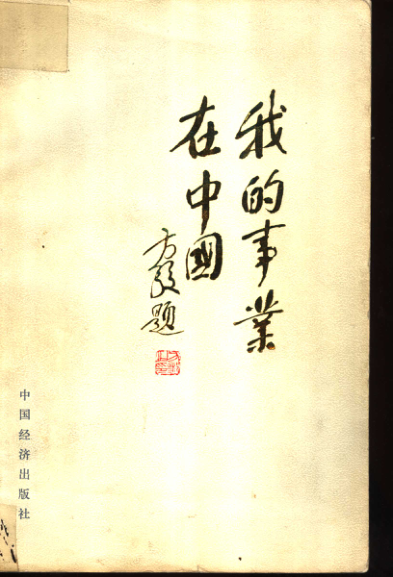 我的事業
在中國
方毅題
中国经济出版社